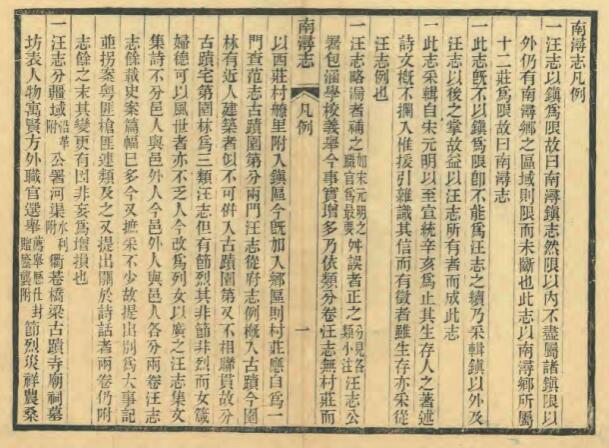 南潯志凡例
一汪志以鎮爲限故曰南潯鎮志然限以內不盡屬諸鎮限以
外仍有南潯鄉之區域則限而未斷也此志以南潯鄉所屬
十二莊爲限故曰南潯志
一此志旣不以鎮爲限卽不能爲汪志之續乃采輯鎮以外及
汪志以後之掌故益以汪志所有者而成此志
一此志采輯自宋元明以至宣統辛亥爲止其生存人之著述
詩文槪不攔入惟援引雜識其信而有徵者雖生存亦采從
汪志例也
一汪志略漏者補之如宋元明之職官爲最要舛誤者正之分見各類小注汪志公
署包涵學校義舉今事實增多乃依類分卷汪志無村莊而
南潯志
凡例
一
以西莊村艙里附入鎮區今旣加入鄉區則村莊應自爲一
門查范志古蹟園第分兩門汪志從府志例槪入古蹟今園
林有近人建築者似不可併入古蹟園第又不相聯貫故分
古蹟宅第園林爲三類汪志但有節烈其非節非烈而女箴
婦德可以風世者亦不乏人今改爲列女以廣之汪志集文
集詩不分邑人與邑外人今邑外人與邑人各分兩卷汪志
志餘載史案篇幅巳多今又摭采不少故提出別爲大事記
並拐案粤匪槍匪連類及之又提出關於詩話者兩卷仍附
志餘之末其變更有因非妄爲增損也
一汪志分疆域沿革附公署河渠水利附衢巷橋梁古蹟寺廟祠墓
坊表人物寓賢方外職官選舉薦舉歷仕封贈廕襲附節烈災祥農桑